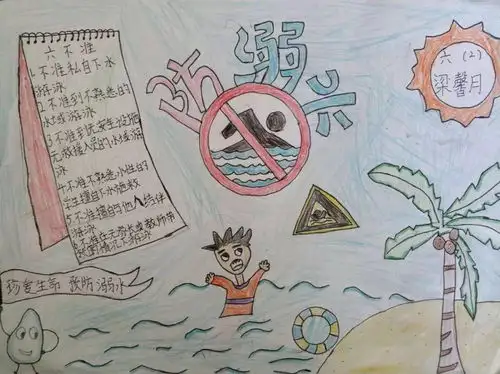 六不准
1.不准私自下水
游泳
2.不准到不熟悉的
水域游泳
3.不准到无安全设施
无救援人员的水域游
泳
4.不准不熟悉水性的
学生擅自下水施救
5.不准擅自与他人结伴
游泳
6.不准在无家长或教师带
的情况下游泳
防溺水
六(2)
梁馨月
珍爱生命 预防溺水